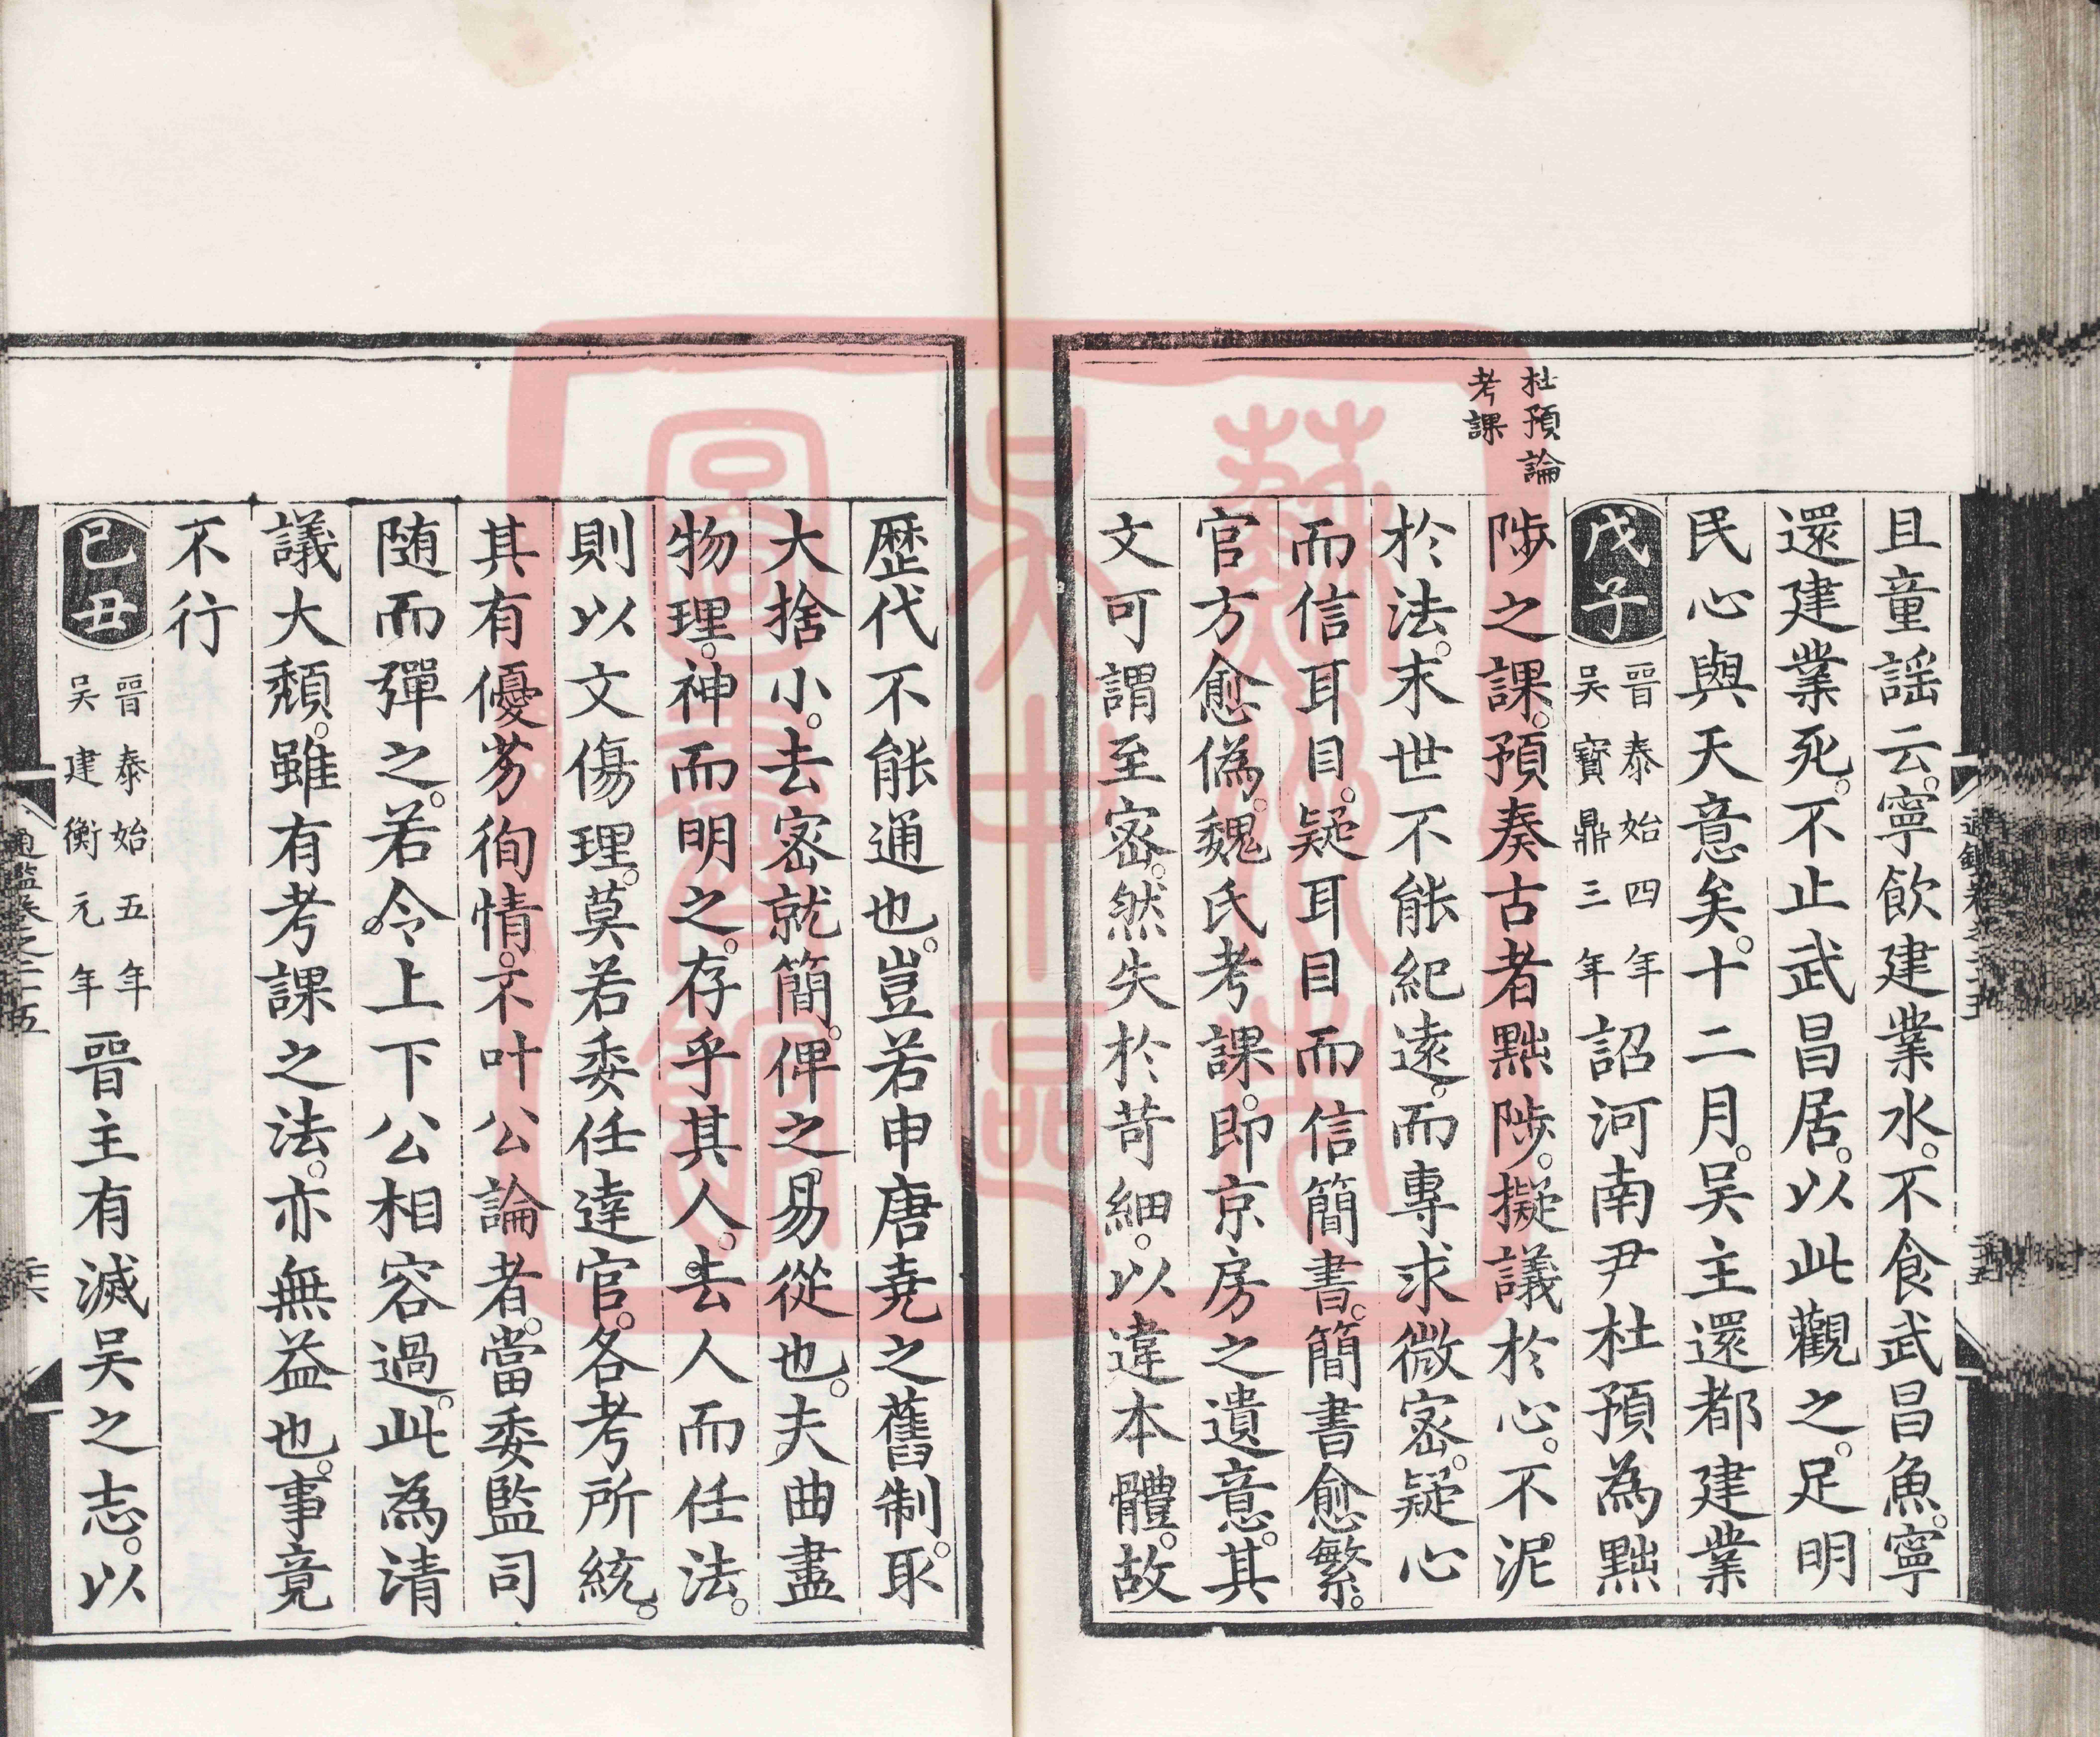 且童謡云。寧飲建業水。不食武昌魚。寧
還建業死。不止武昌居。以此觀之。足明
民心與天意矣。十二月。吴主還都建業
戊子 晉泰始四年 吴寶鼎三年 詔河南尹杜預為黜
杜預論
考課
陟之課。預奏古者黜陟。擬議於心。不泥
於法。末世不能紀遠。而專求微密。疑心
而信耳目。疑耳目而信簡書。簡書愈繁。
官方愈偽。魏氏考課。即京房之遺意。其
文可謂至密。然失於苛細。以違本體。故
歷代不能通也。豈若申唐堯之舊制。取
大捨小。去密就簡。俾之易從也。夫曲盡
物理。神而明之。存乎其人。去人而任法。
則以文傷理。莫若委任達官。各考所統。
其有優劣徇情。不叶公論者。當委監司
随而彈之。若令上下公相容過。此為清
議大頹。雖有考課之法。亦無益也。事竟
不行
己丑 晉泰始五年 吴建衡元年 晉主有滅吴之志。以
通鑑卷之二十五
蘇州市
吴中區
圖書館